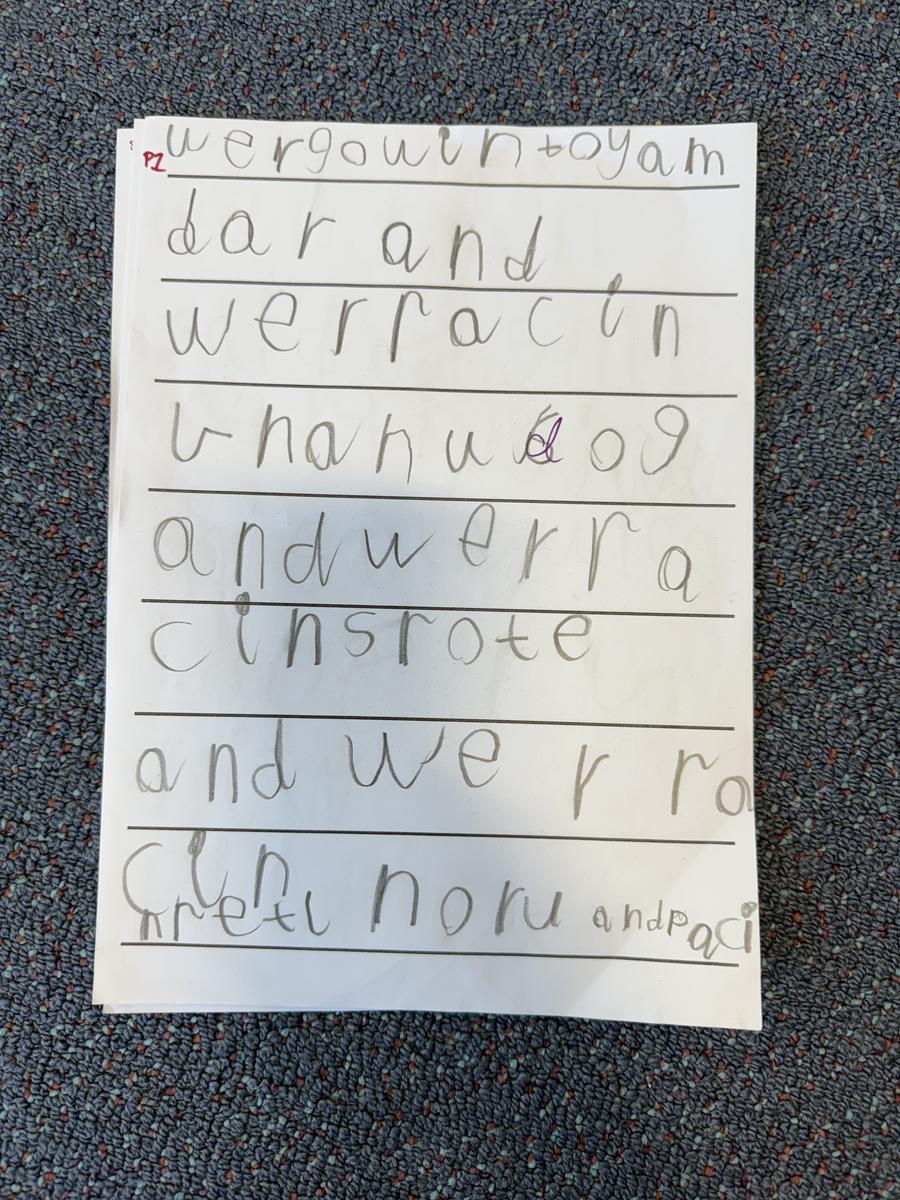 P1
wergowin toyam
dar and
werracin
vhanu dog
andwerra
cinsrote
and we r ra
cin noru andpaci
nreti